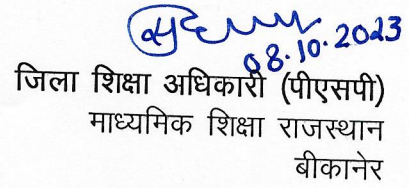 08.10.2023
जिला शिक्षा अधिकारी (पीएसपी)
माध्यमिक शिक्षा राजस्थान
बीकानेर